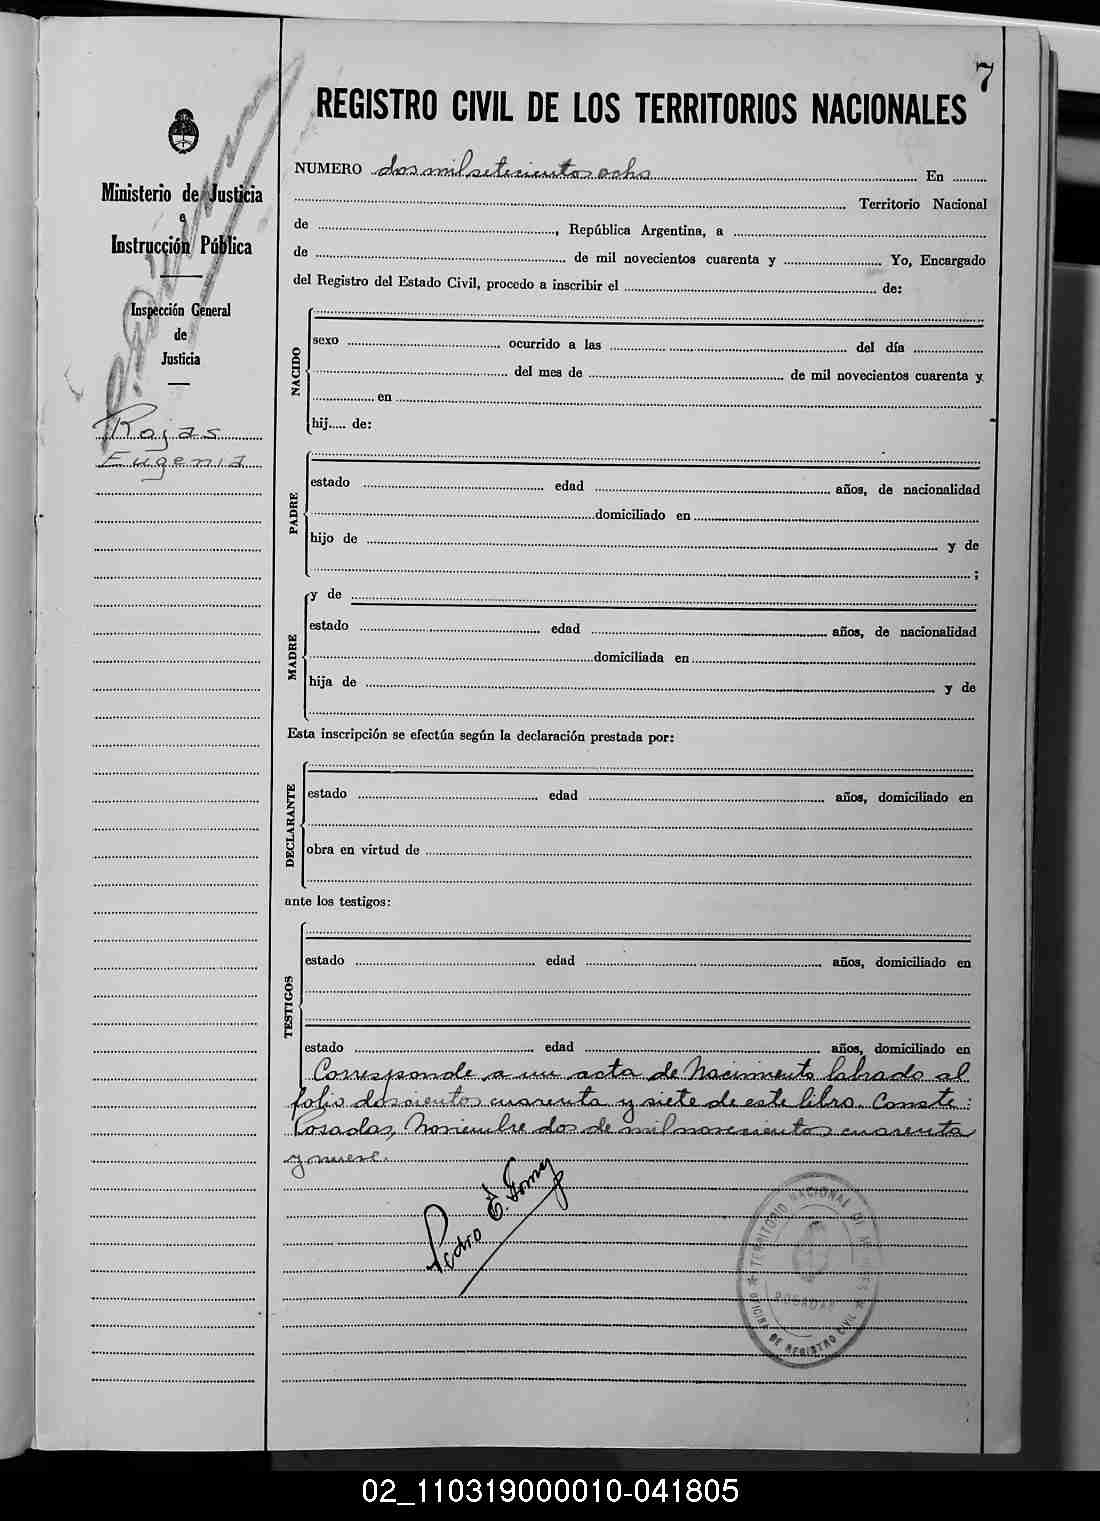 7
REGISTRO CIVIL DE LOS TERRITORIOS NACIONALES
Ministerio de Justicia
e
Instrucción Pública
Inspección General
de
Justicia
Rojas
Eugenia
NUMERO dos mil setecientos ocho En
Territorio Nacional
de , República Argentina, a
de de mil novecientos cuarenta y Yo, Encargado
del Registro del Estado Civil, procedo a inscribir el de:
NACIDO
sexo ocurrido a las del día
del mes de de mil novecientos cuarenta y
en
hij..... de:
PADRE
estado edad años, de nacionalidad
domiciliado en
hijo de y de
;
MADRE
y de
estado edad años, de nacionalidad
domiciliada en
hija de y de
Esta inscripción se efectúa según la declaración prestada por:
DECLARANTE
estado edad años, domiciliado en
obra en virtud de
ante los testigos:
TESTIGOS
estado edad años, domiciliado en
estado edad años, domiciliado en
Corresponde a un acta de Nacimiento labrado al
folio doscientos cuarenta y siete de este libro. Conste:
Posadas, Noviembre dos de mil novecientos cuarenta
y nueve.
Pedro E. Gomez
TERRITORIO NACIONAL DE MISIONES
POSADAS
OFICINA DE REGISTRO CIVIL
02_110319000010-041805